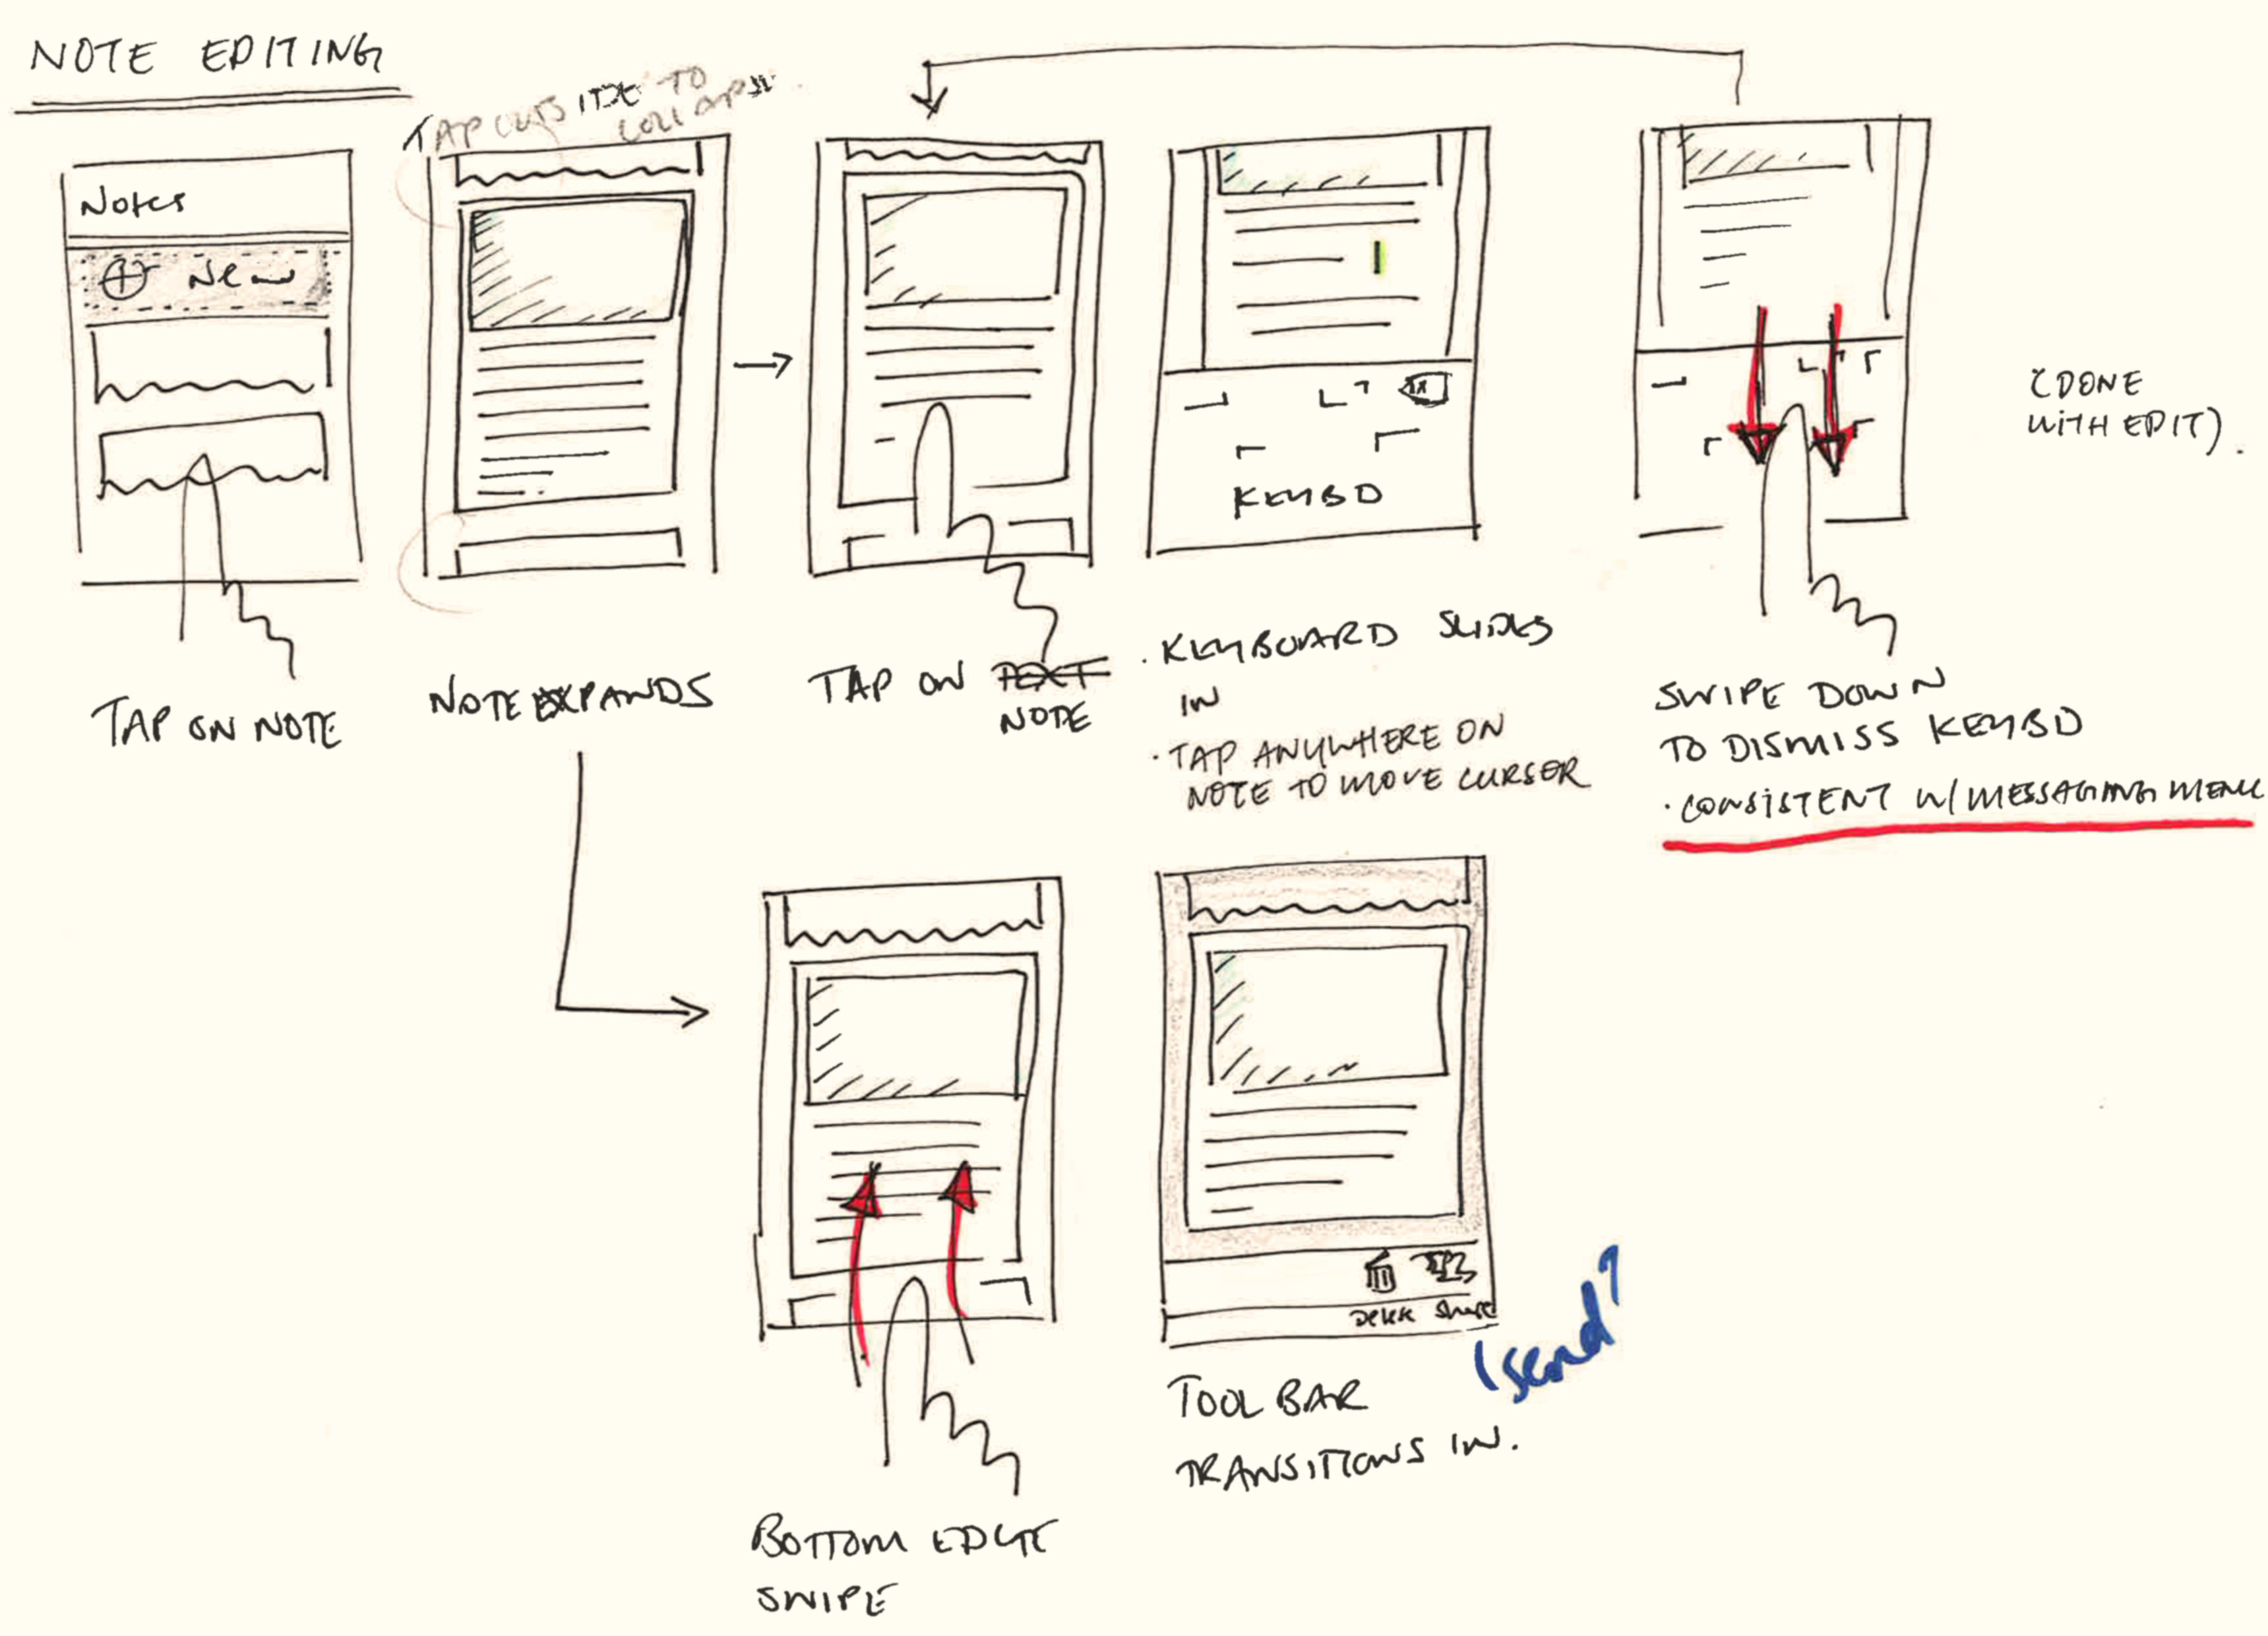 NOTE EDITING
TAP OUTSIDE TO
COLLAPSE.
Notes
⊕ New
TAP ON NOTE
NOTE EXPANDS
TAP ON TEXT
NOTE
KEYBD
· KEYBOARD SLIDES
IN
· TAP ANYWHERE ON
NOTE TO MOVE CURSOR
(DONE
WITH EDIT).
SWIPE DOWN
TO DISMISS KEYBD
· CONSISTENT W/ MESSAGING MENU
BOTTOM EDGE
SWIPE
Delete Share
(send?
TOOLBAR
TRANSITIONS IN.